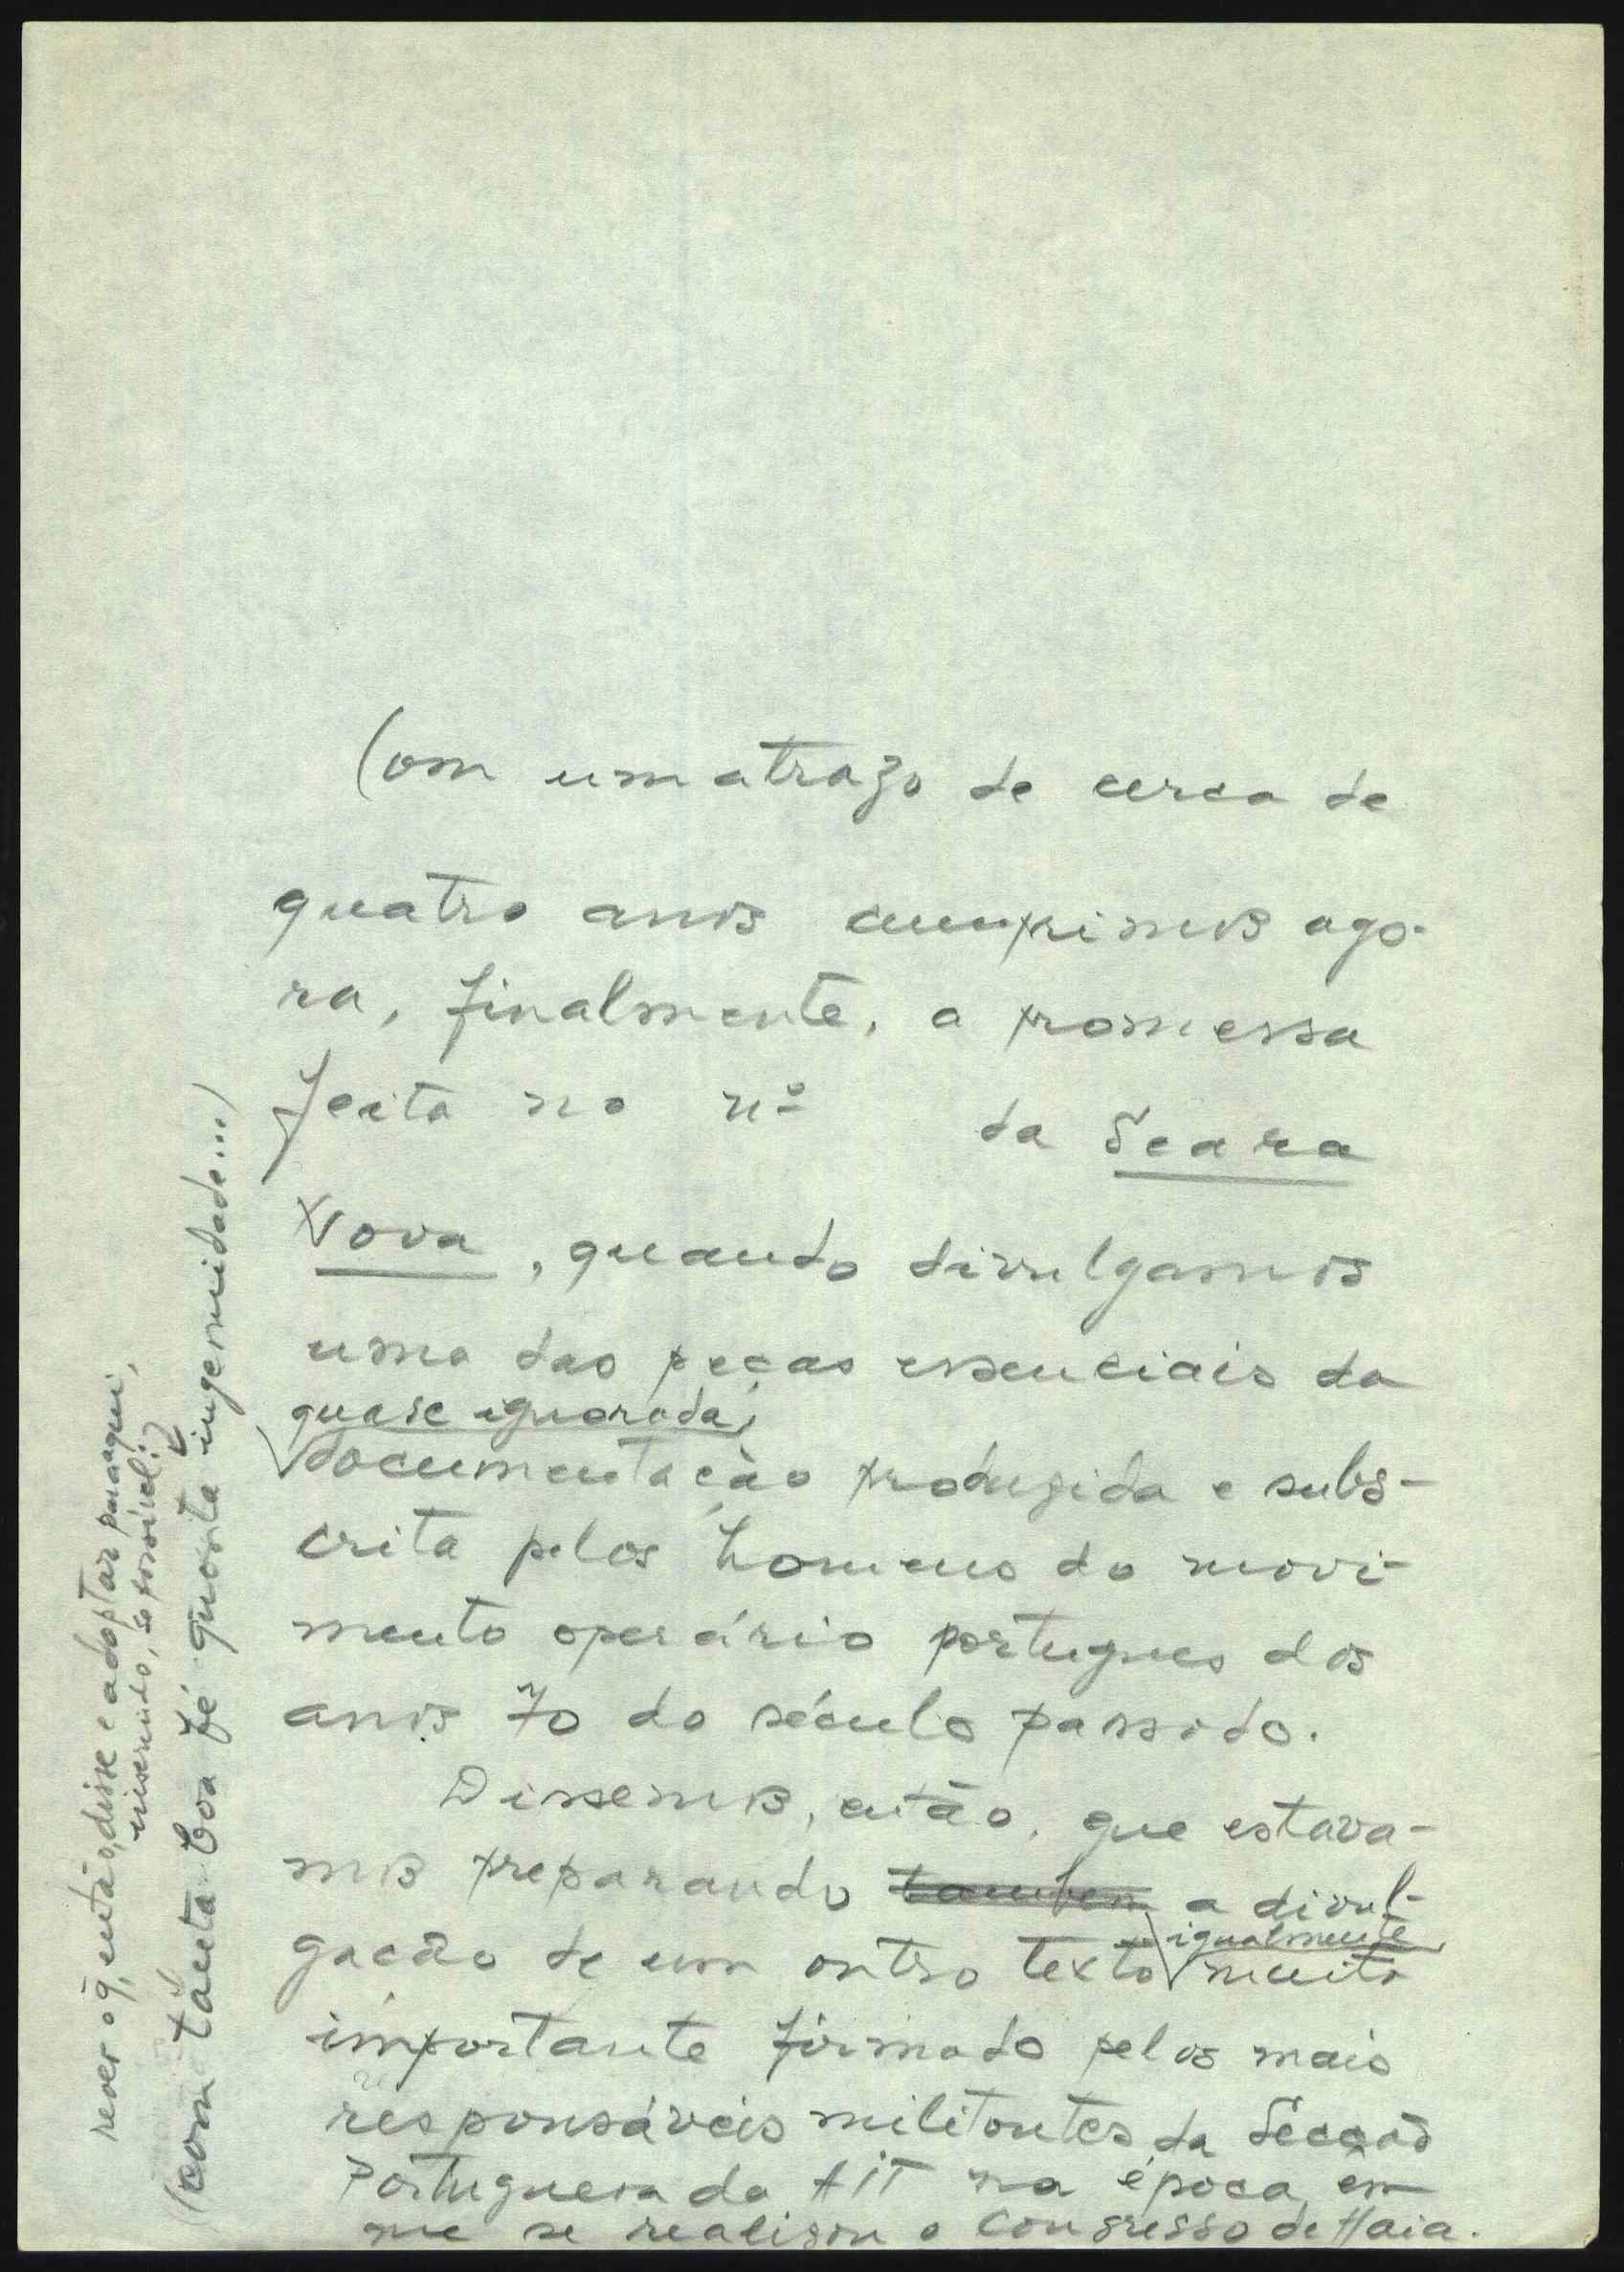 Com um atrazo de cerca de
quatro anos cumprimos ago-
ra, finalmente, a promessa
feita no nº da Seara
Nova, quando divulgamos
uma das peças essenciais da
quase ignorada,
documentação produzida e subs-
crita pelos homens do movi-
mento operário portugues dos
anos 70 do século passado.
Dissemos, então, que estava-
mos preparando tambem a divul-
gação de um outro texto igualmente muito
importante firmado pelos mais
responsáveis militantes da Secção
Portuguesa da AIT na época em
que se realizou o Congresso de Haia.
rever o q, então, disse e adoptar para aqui,
inserindo, se possivel:
(com tanta boa fé quanta ingenuidade...)